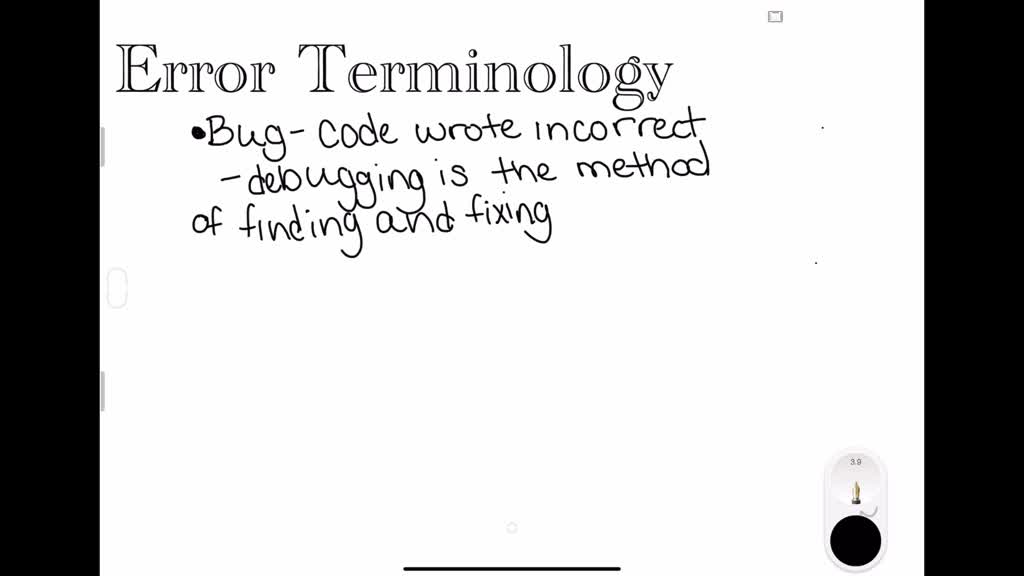 Error Terminology
•Bug- code wrote incorrect
-debugging is the method
of finding and fixing
3.9